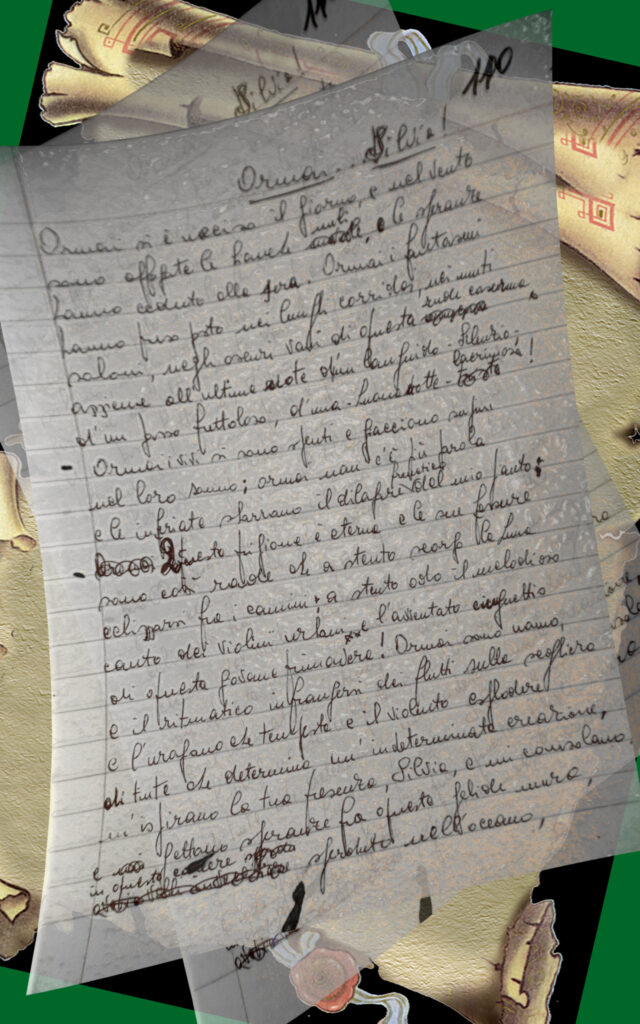 110
Ormai... Silvia!
Ormai si è ucciso il giorno, e nel vento
sono affogate le parole e le speranze
hanno ceduto alla sera. Ormai i fantasmi
hanno preso posto nei lunghi corridoi, nei muti
saloni, negli oscuri vani di questa rude caserma
assieme all'ultime note d'un languido Silenzio,
d'un passo frettoloso, d'una buona notte lacrimosa!
Ormai i vivi si sono spenti e giacciono supini
nel loro sonno; ormai non c'è più parola
e le inferiate sbarrano il dilagare del mio pianto;
Questa prigione è eterna e le sue fessure
sono così rade che a stento scorgo la luna
eclissarsi fra i camini, a stento odo il melodioso
canto dei violini urlanti e l'assentato cinguettio
di questa giovane primavera! Ormai sono vano,
e il ritmatico infrangersi dei flutti sulla scogliera
e l'uragano che tempesta e il violento esplodere
di tinte che determina un'indeterminata creazione,
m'ispirano la tua presenza, Silvia, e mi consolano
e gettano speranze fra queste gelide mura,
in questo sperdute nell'oceano,
Silvia!